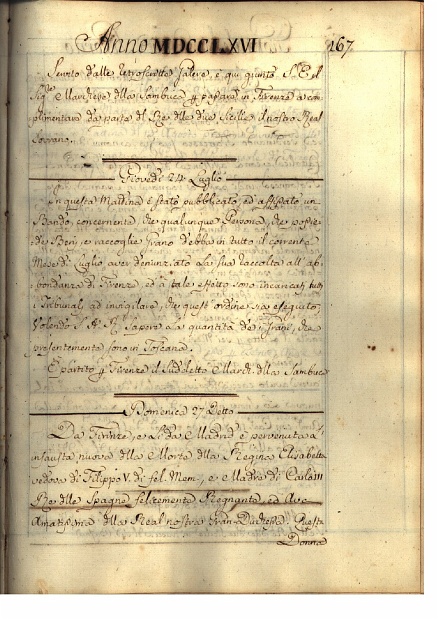 Anno MDCCLXVI 167.
Scorto dalle retroscritte Galere, è qui giunto S. E. il
Sig.re Marchese della Sambuca p. passare in Firenze a com
plimentare da parte del Re delle due Sicilie il nostro Real
Sovrano.
Giovedì 24 Luglio
In questa Mattina è stato pubblicato, ed affissato un
Bando, concernente, che qualunque Persona, che possie
de Beni, e raccoglie Grano debba in tutto il corrente
Mese di Luglio aver denunziato la sua raccolta all' ab
bondanza di Firenze, ed a tale effetto sono incaricati tutti
i Tribunali ad invigilare, che quest' ordine sia eseguito,
Volendo S. A. R. sapere la quantità de' Grani, che
presentemente sono in Toscana.
È partito p. Firenze il Sud.detto March. della Sambuca
Domenica 27 Detto
Da Firenze, e da Madrid è pervenuta l'
infausta nuova della Morte della Regina Elisabetta
vedova di Filippo V. di fel. Mem:, e Madre di Carlo III
Re delle Spagne felicemente Regnante, ed Ava
Amatissima della Real nostra Gran-Duchessa. Questa
Donna